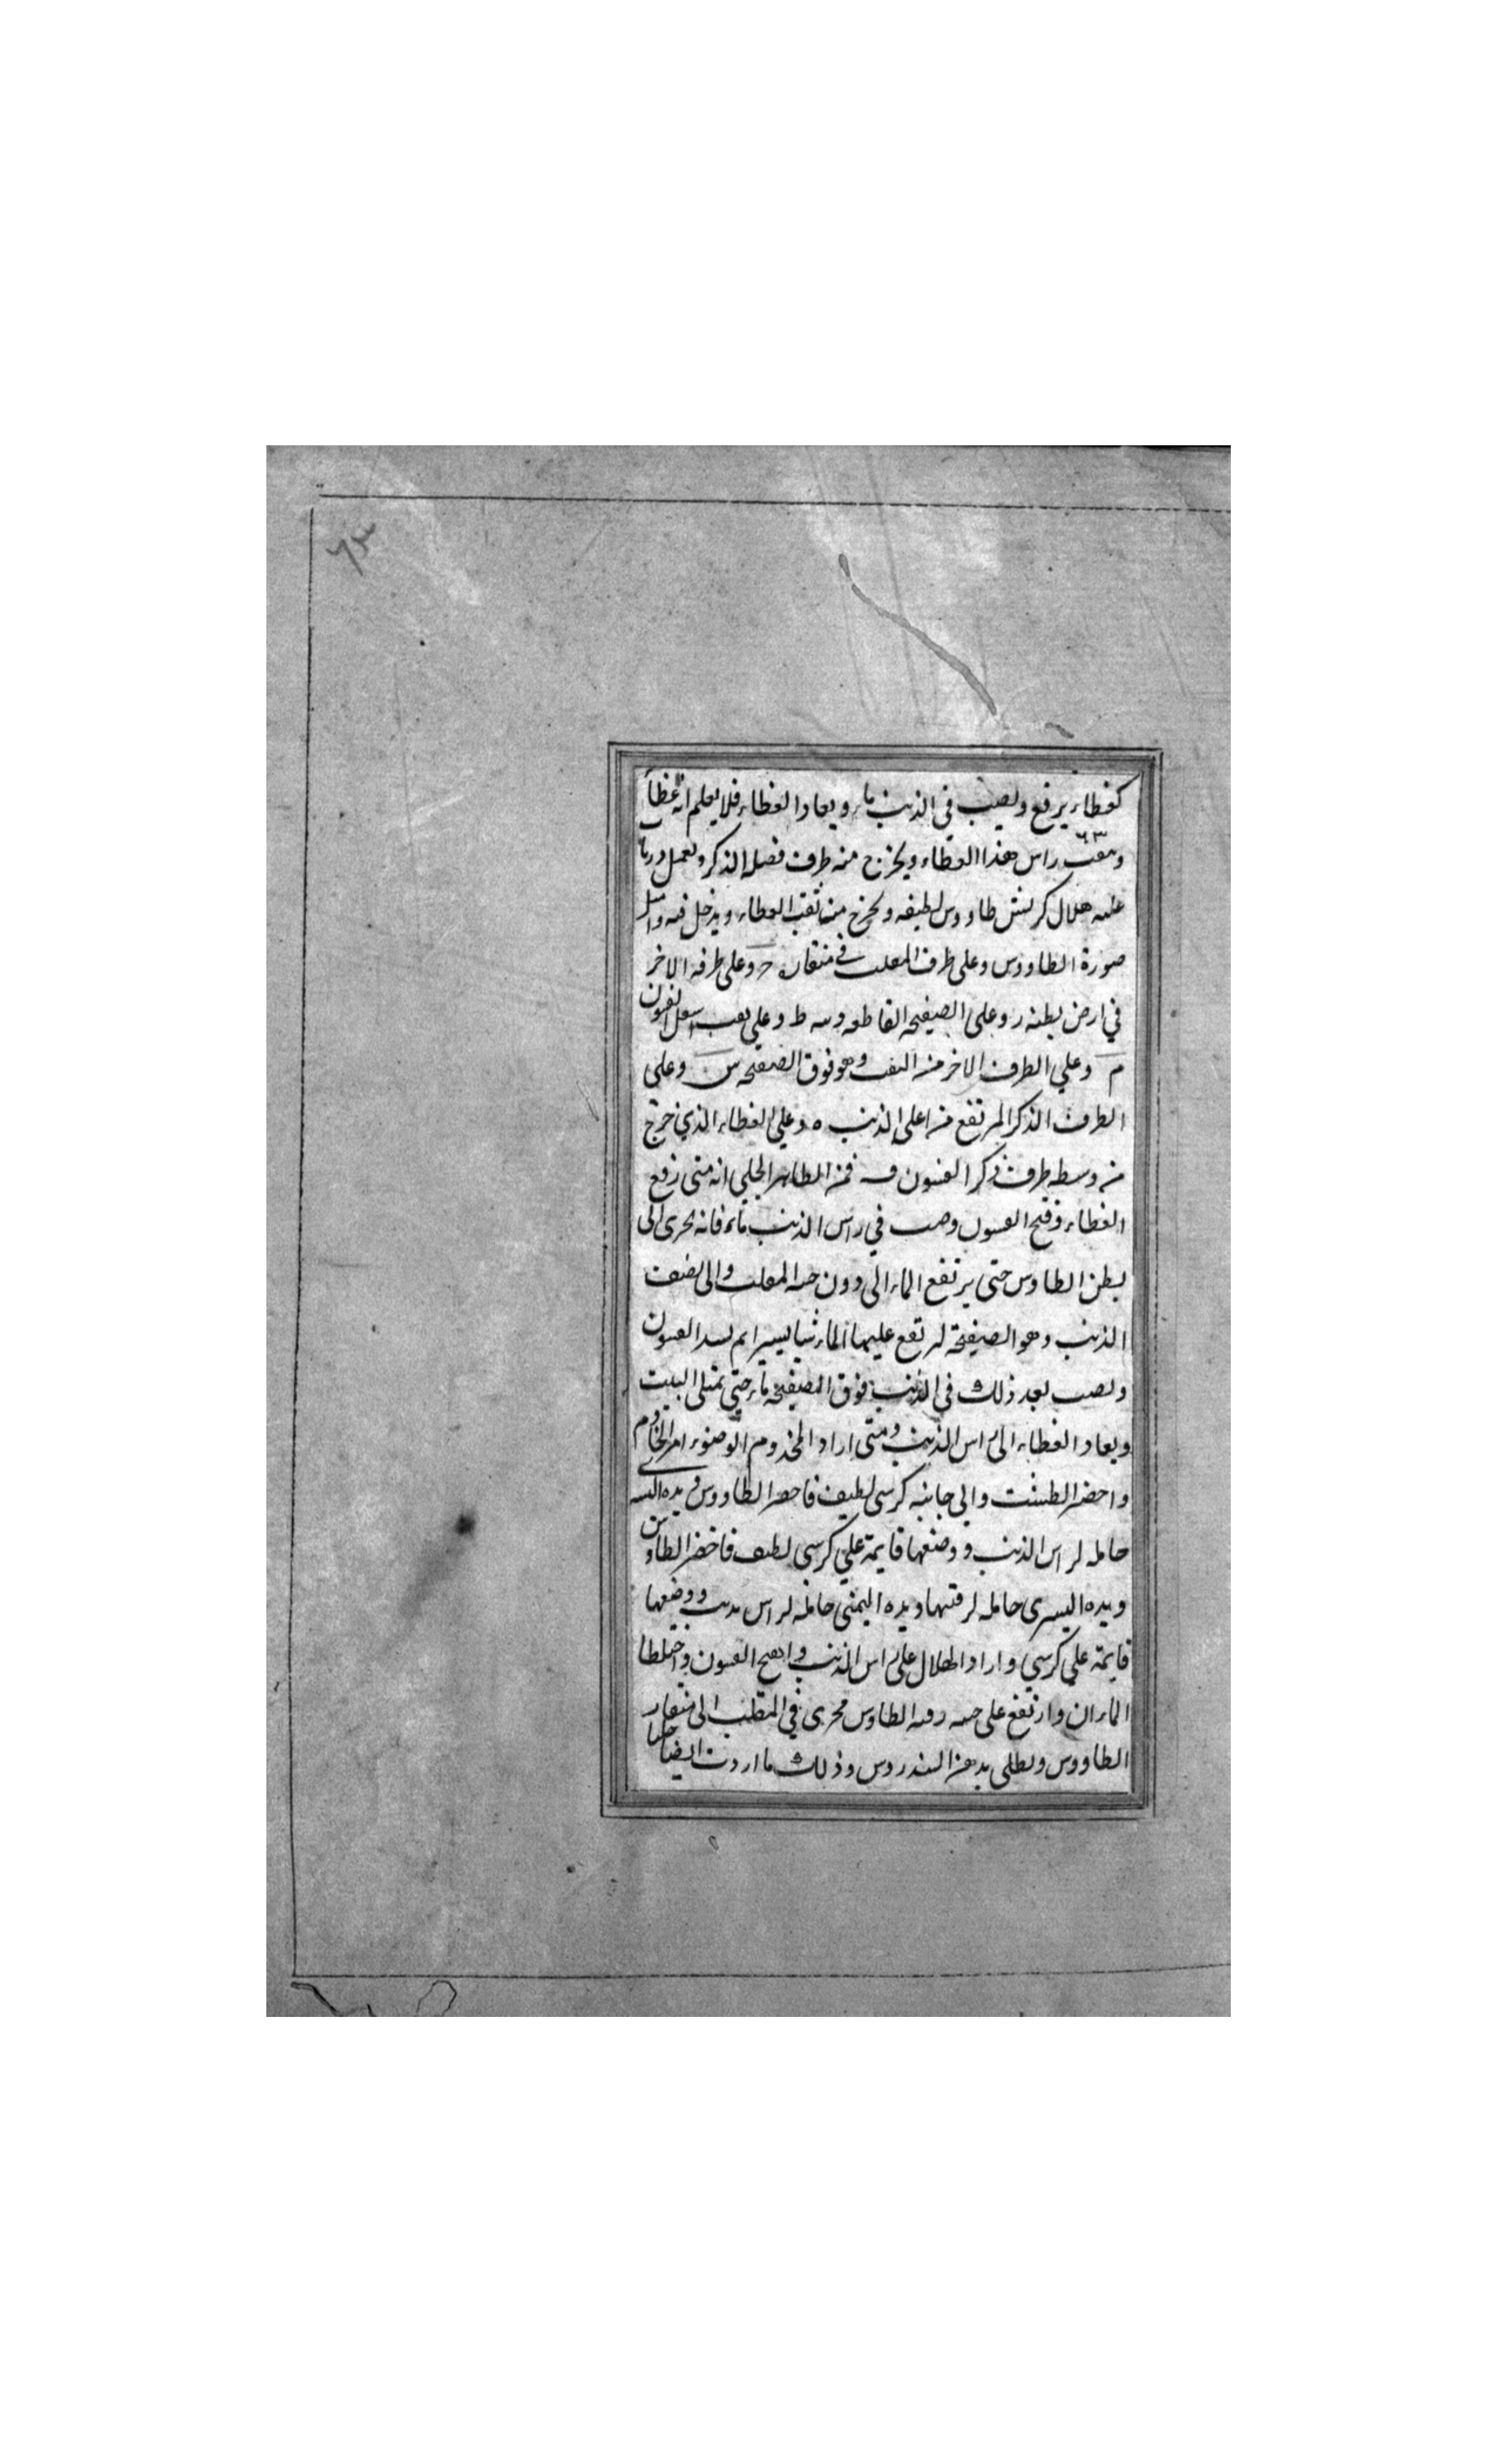 ٦٣
كغطاء يرفع ويصب في الذنب ماء ويعاد الغطاء فلا يعلم انه غطا
٦٣
وىىقب راس هذا الغطاء ويخرج منه طرف فضله الذكر ويعمل دربا
عليه هلال كريش طاووس لطيفه ويخرج من ثقب الغطاء ويدخل فيه
صورة الطاووس وعلى طرف المقلب في منقاره ح وعلى طرفه الاخر
في ارض بطنه ر وعلى الصفيحه القاطعه وسط وعلى ثقب اسفل الفيون
م وعلي الطرف الاخر منه وهو فوق الصفيحه س وعلى
الطرف الذكر المرتفع من اعلى الذنب ه وعلي الغطاء الذي خرج
من وسطه طرف ذكر الفيون ف فمن الظاهر الجلي انه متى رفع
الغطاء وفتح الفيون وصب في راس الذنب ماء فانه يجرى الى
بطن الطاوس حتى يرتفع الماء الى دون المقلب والى نصف
الذنب وهو الصفيحة ليرتفع عليها الماء شيا يسيرا ثم يسد الفيون
ويصب بعد ذلك في الذنب فوق الصفيحه ماء حتى يمتلى البيت
ويعاد الغطاء الى راس الذنب ومتى اراد المخدوم الوضوء امر الخادم
واحضر الطشت والي جانبه كرسى لطيف فاحضر الطاووس ويده
حامله لراس الذنب ووضعها قايمة علي كرسى لطيف فاحضر الطاوس
ويده اليسرى حامله لرقبتها ويده اليمنى حامله لراس ذنب ووضعها
قايمة علي كرسي وادار الهلال على راس الذنب وانفتح الفيون واختلطا
الماءان وارتفع على رقبه الطاوس فجرى في المقلب الى منقار
الطاووس ويطلى بدهن السندروس وذلك ما اردت ايضاحه